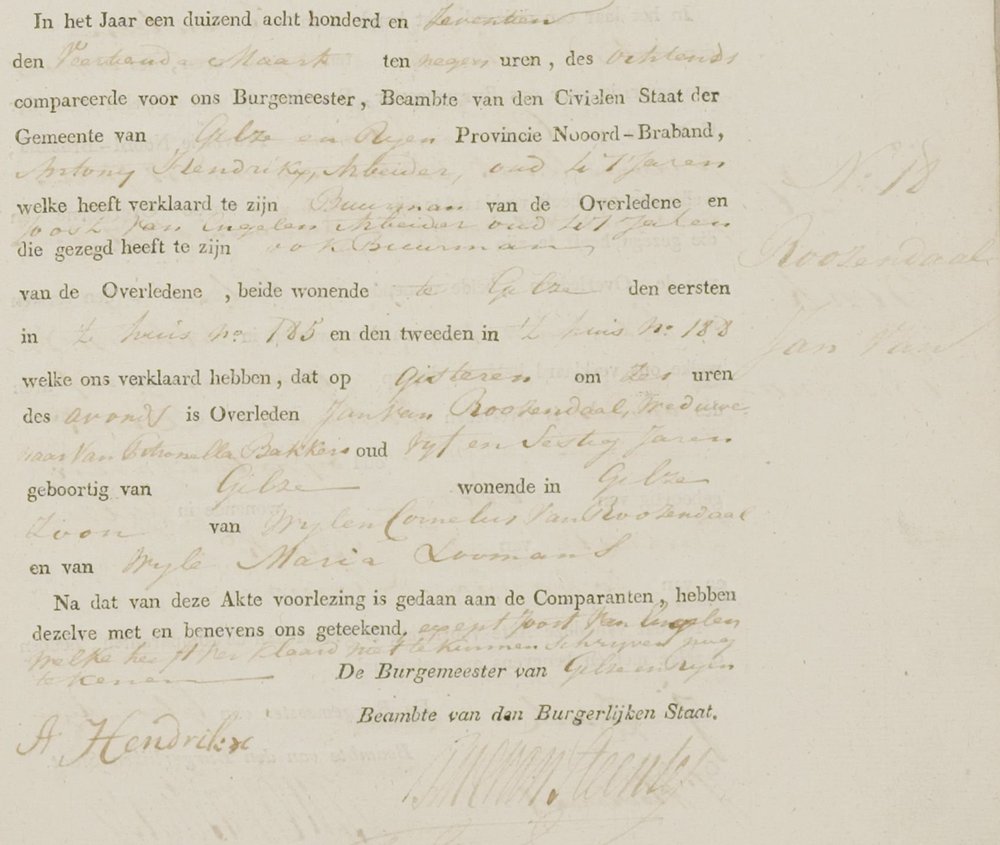 In het Jaar een duizend acht honderd en Zeventien
den Veertiende Maart ten negen uren, des ochtends
compareerde voor ons Burgemeester, Beambte van den Civielen Staat der
Gemeente van Gilze en Ryen Provincie Nooord-Braband,
Antony Hendrikx, Arbeider, oud 47 Jaren
welke heeft verklaard te zijn Buurman van de Overledene en
Joost Van Engelen Arbeider oud 47 Jaren
die gezegd heeft te zijn ook Buurman
van de Overledene, beide wonende te Gilze den eersten
in 't huis no. 185 en den tweeden in 't huis no. 188
welke ons verklaard hebben, dat op gisteren om zes uren
des avonds is Overleden Jan Van Roosendaal, Weduwe
naar Van Petronella Bakkers oud Vyf en Sestig Jaren
geboortig van Gilze wonende in Gilze
Zoon van Wylen Cornelus Van Roosendaal
en van Wyle Maria Loomans
Na dat van deze Akte voorlezing is gedaan aan de Comparanten, hebben
dezelve met en benevens ons geteekend, exept Joost Van Engelen
Welke heeft verklaard niet te kunnen schryven nog
tekenen
De Burgemeester van Gilze en Ryen
Beambte van den Burgerlijken Staat.
A Hendrikx
No. 18
Roosendaal
Jan Van